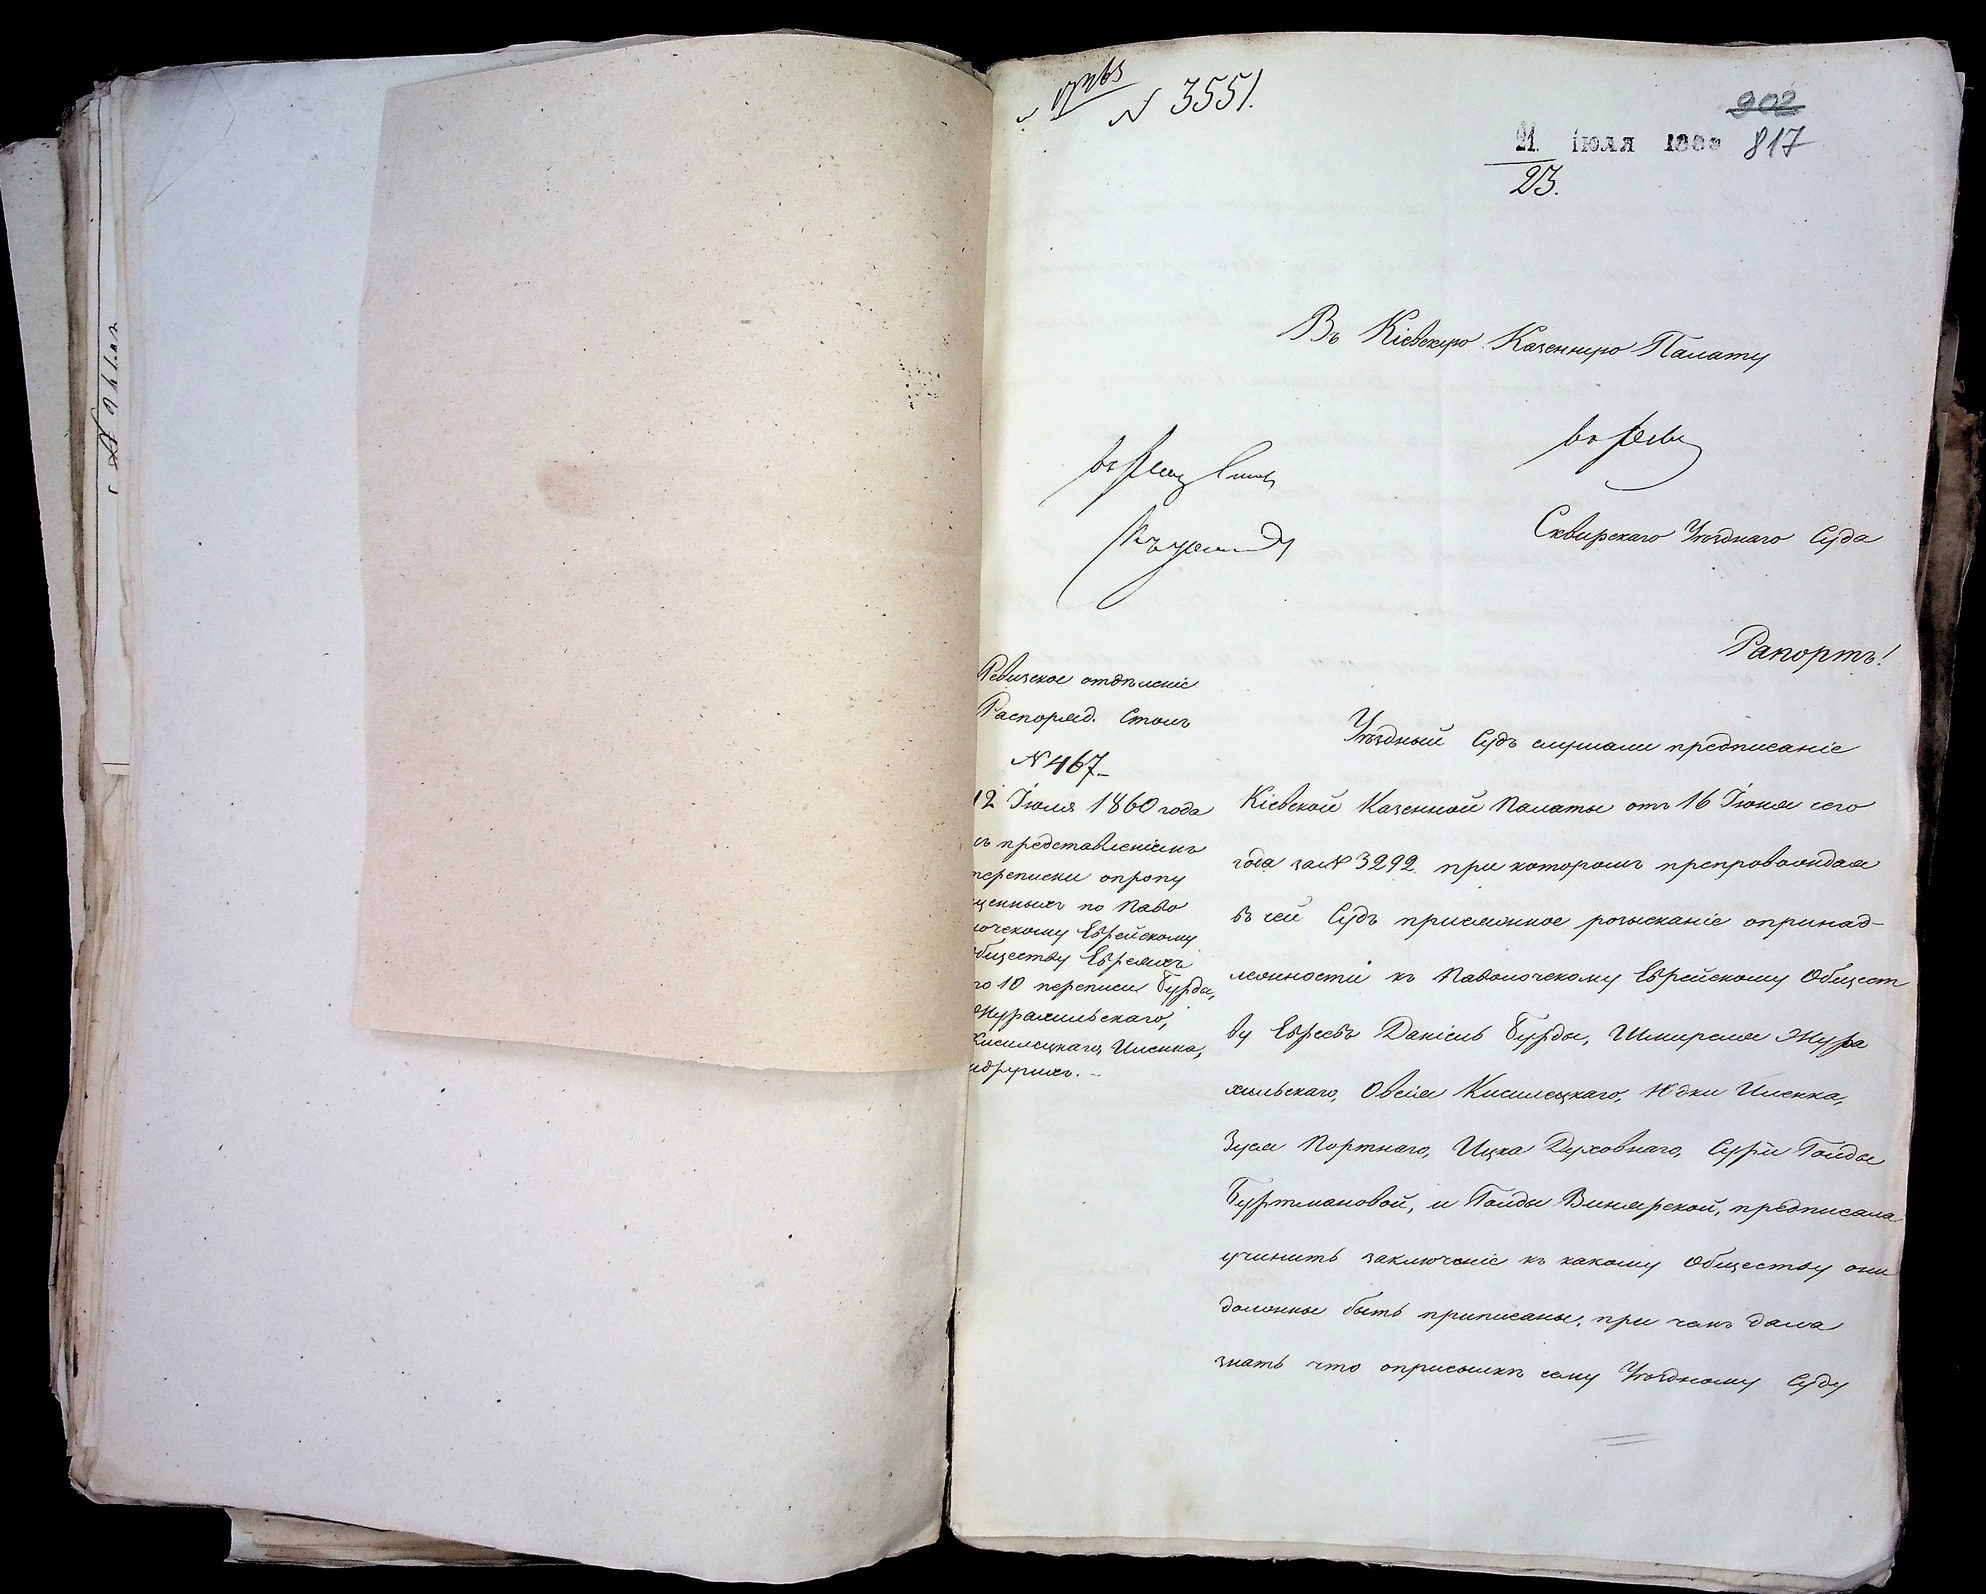 N 3551.
902
21. ІЮЛЯ 1860 817
23.
Въ Кіевскую Казенную Палату
Сквирскаго Уѣзднаго Суда
Рапортъ!
Ревизское отдѣленіе
Распоряд. Столъ
N 467.
12 Іюля 1860 года
съ представленіемъ
переписки опропу
щенныхъ по Паво
лочскому Еврейскому
Обществу Евреяхъ
по 10 переписи Бурда,
Журахильскаго,
Кисилецкаго, Иленка,
идругихъ. —
Уѣздный Судъ слушали предписаніе
Кіевской Казенной Палаты отъ 16 Іюня сего
года за N 3292 при которомъ препровождая
въ сей Судъ присяжное розысканіе опринад-
лежности къ Паволочскому Еврейскому Общест
ву Евреевъ Даніель Бурды, Шмиреля Жура
хильскаго, Овсія Кисилецкаго, Юдки Иленка,
Зуся Портнаго, Ицка Духовнаго, Суры Гольды
Буртмановой, и Гольды Винярской, предписала
учинить заключеніе къ какому Обществу они
должны быть приписаны, при чемъ дала
знать что оприсылкѣ сему Уѣздному Суду